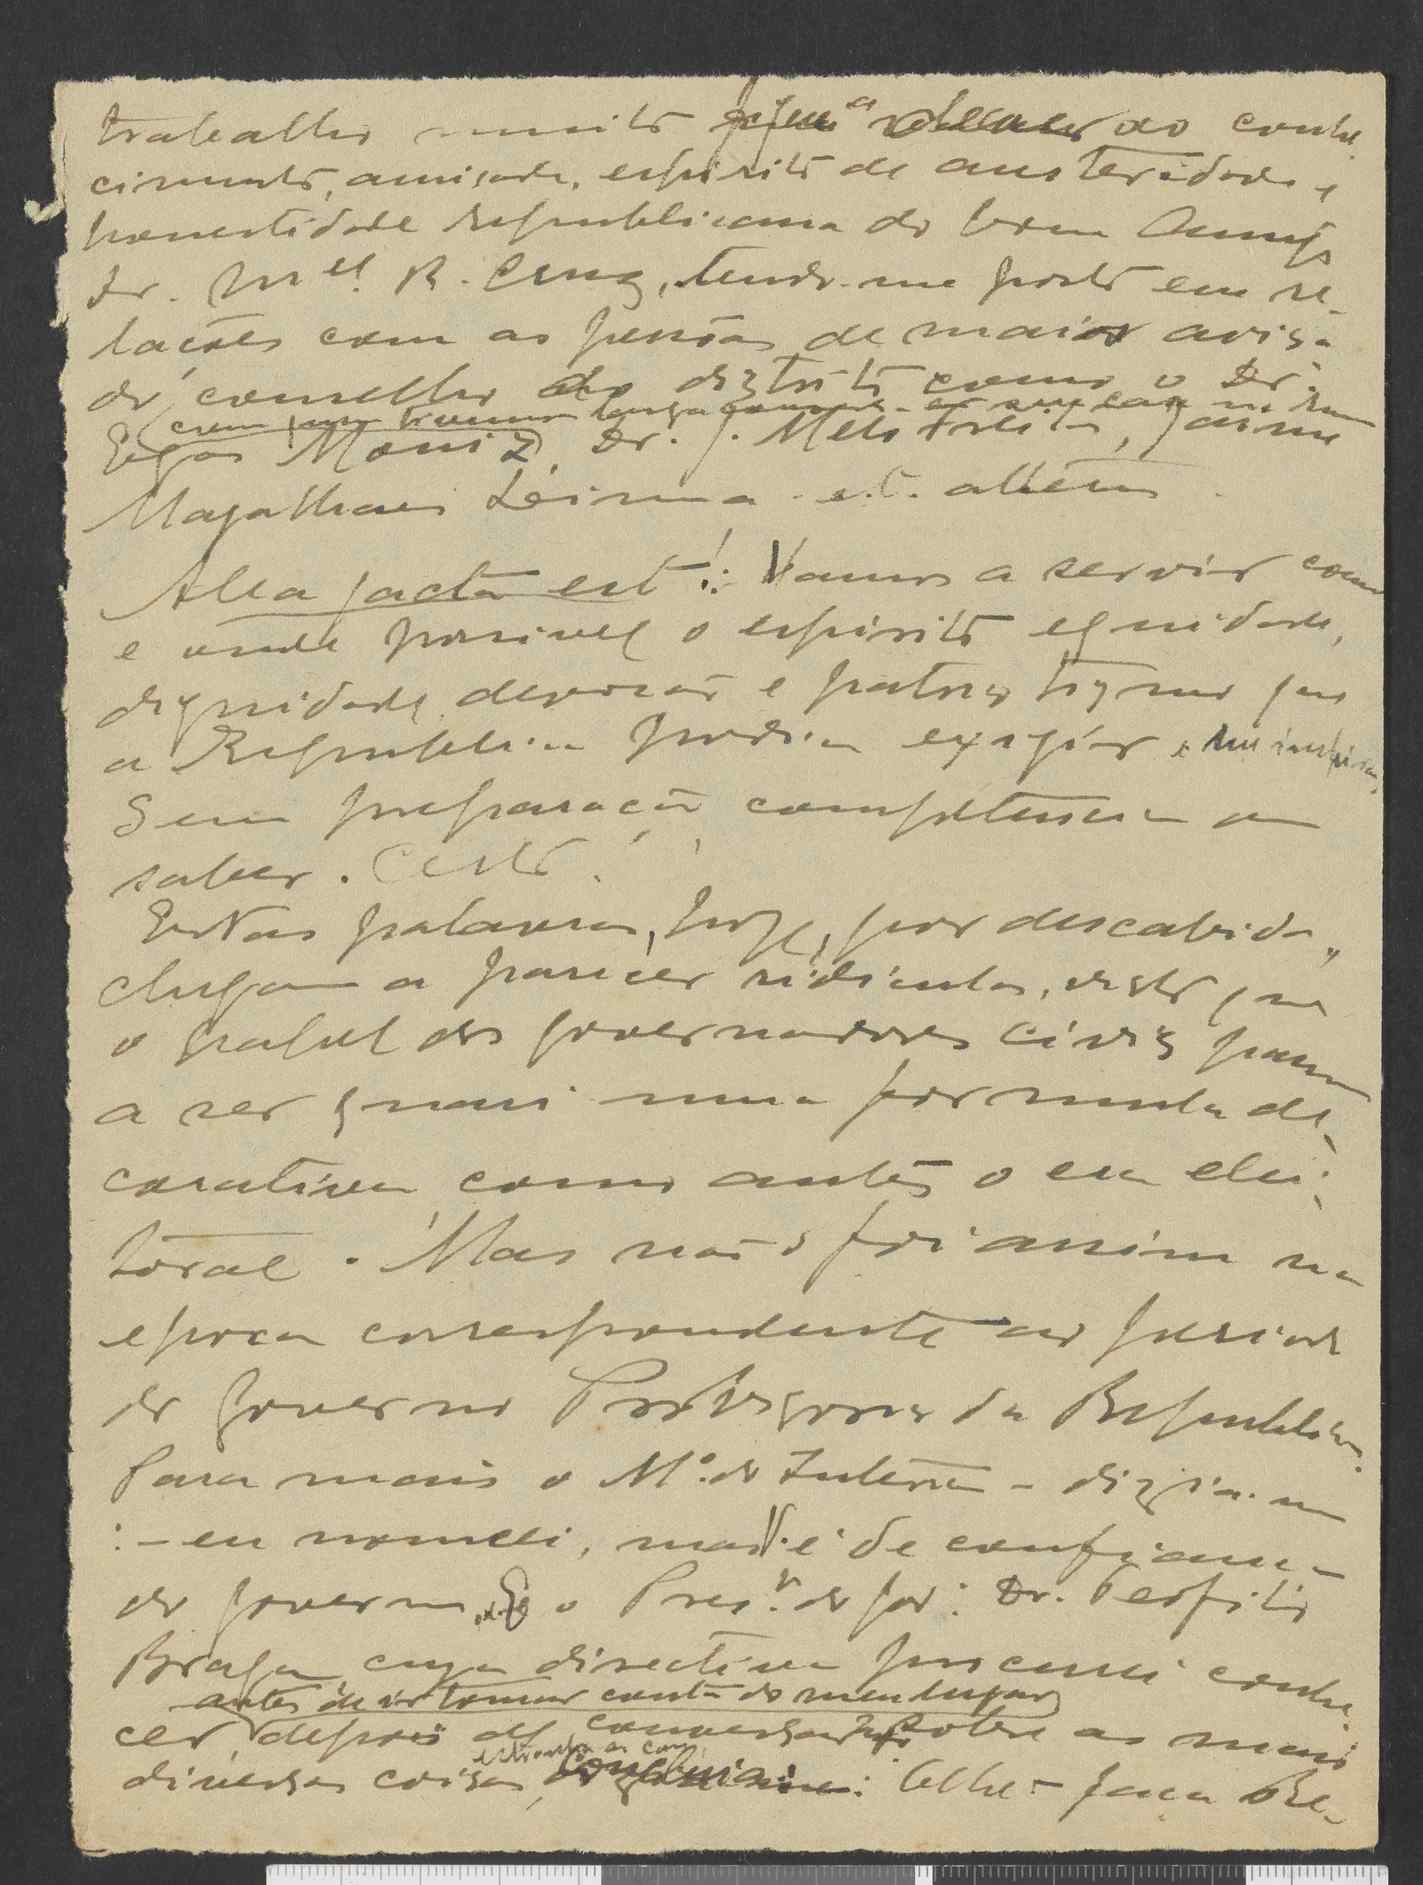 trabalho muito ao conhe
cimento, amisade, espirito de austeridade e
honestidade republicana do bom Amigo
Dr. Mel. R. Cruz, tendo-me posto em re-
lações com as pessôas de maior avisa-
do conselho do distrito como o Dr.
com quem tivemos longa
Egas Moniz, Dr. J. Melo Freitas, Jaime
Magalhaes Leima e.c. alteros.
Alea jacta est!: Vamos a servir como
e onde possivel o espirito equidade,
dignidade, devoção e patriotismo que
a Republica podia exigir e
Sem preparação, competencia ou
saber. Certo.
Estas palavras, hoje, por descabidas,
chegam a parecer ridiculas, visto que
o papel dos governadores civis passou
a ser quasi uma formula de-
corativa como antes o era elei-
toral. Mas não foi assim na
epoca correspondente ao periodo
do Governo Provisorio da Republica.
Para mais o Mº. do Interior - dizia-me
:- eu nomeei, mas é de confiança
do governo. E o Preste. do gov: Dr. Teofilo
Braga cuja directiva procurei conhe-
antes de ir tomar conta do meu lugar
cer, depois de conversar sobre as mais
diversas coisas, : Olhe - para Re-